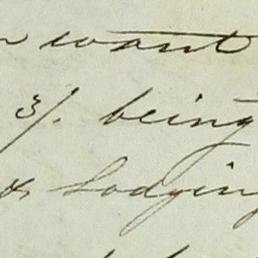 want
3/. being
& Lodging